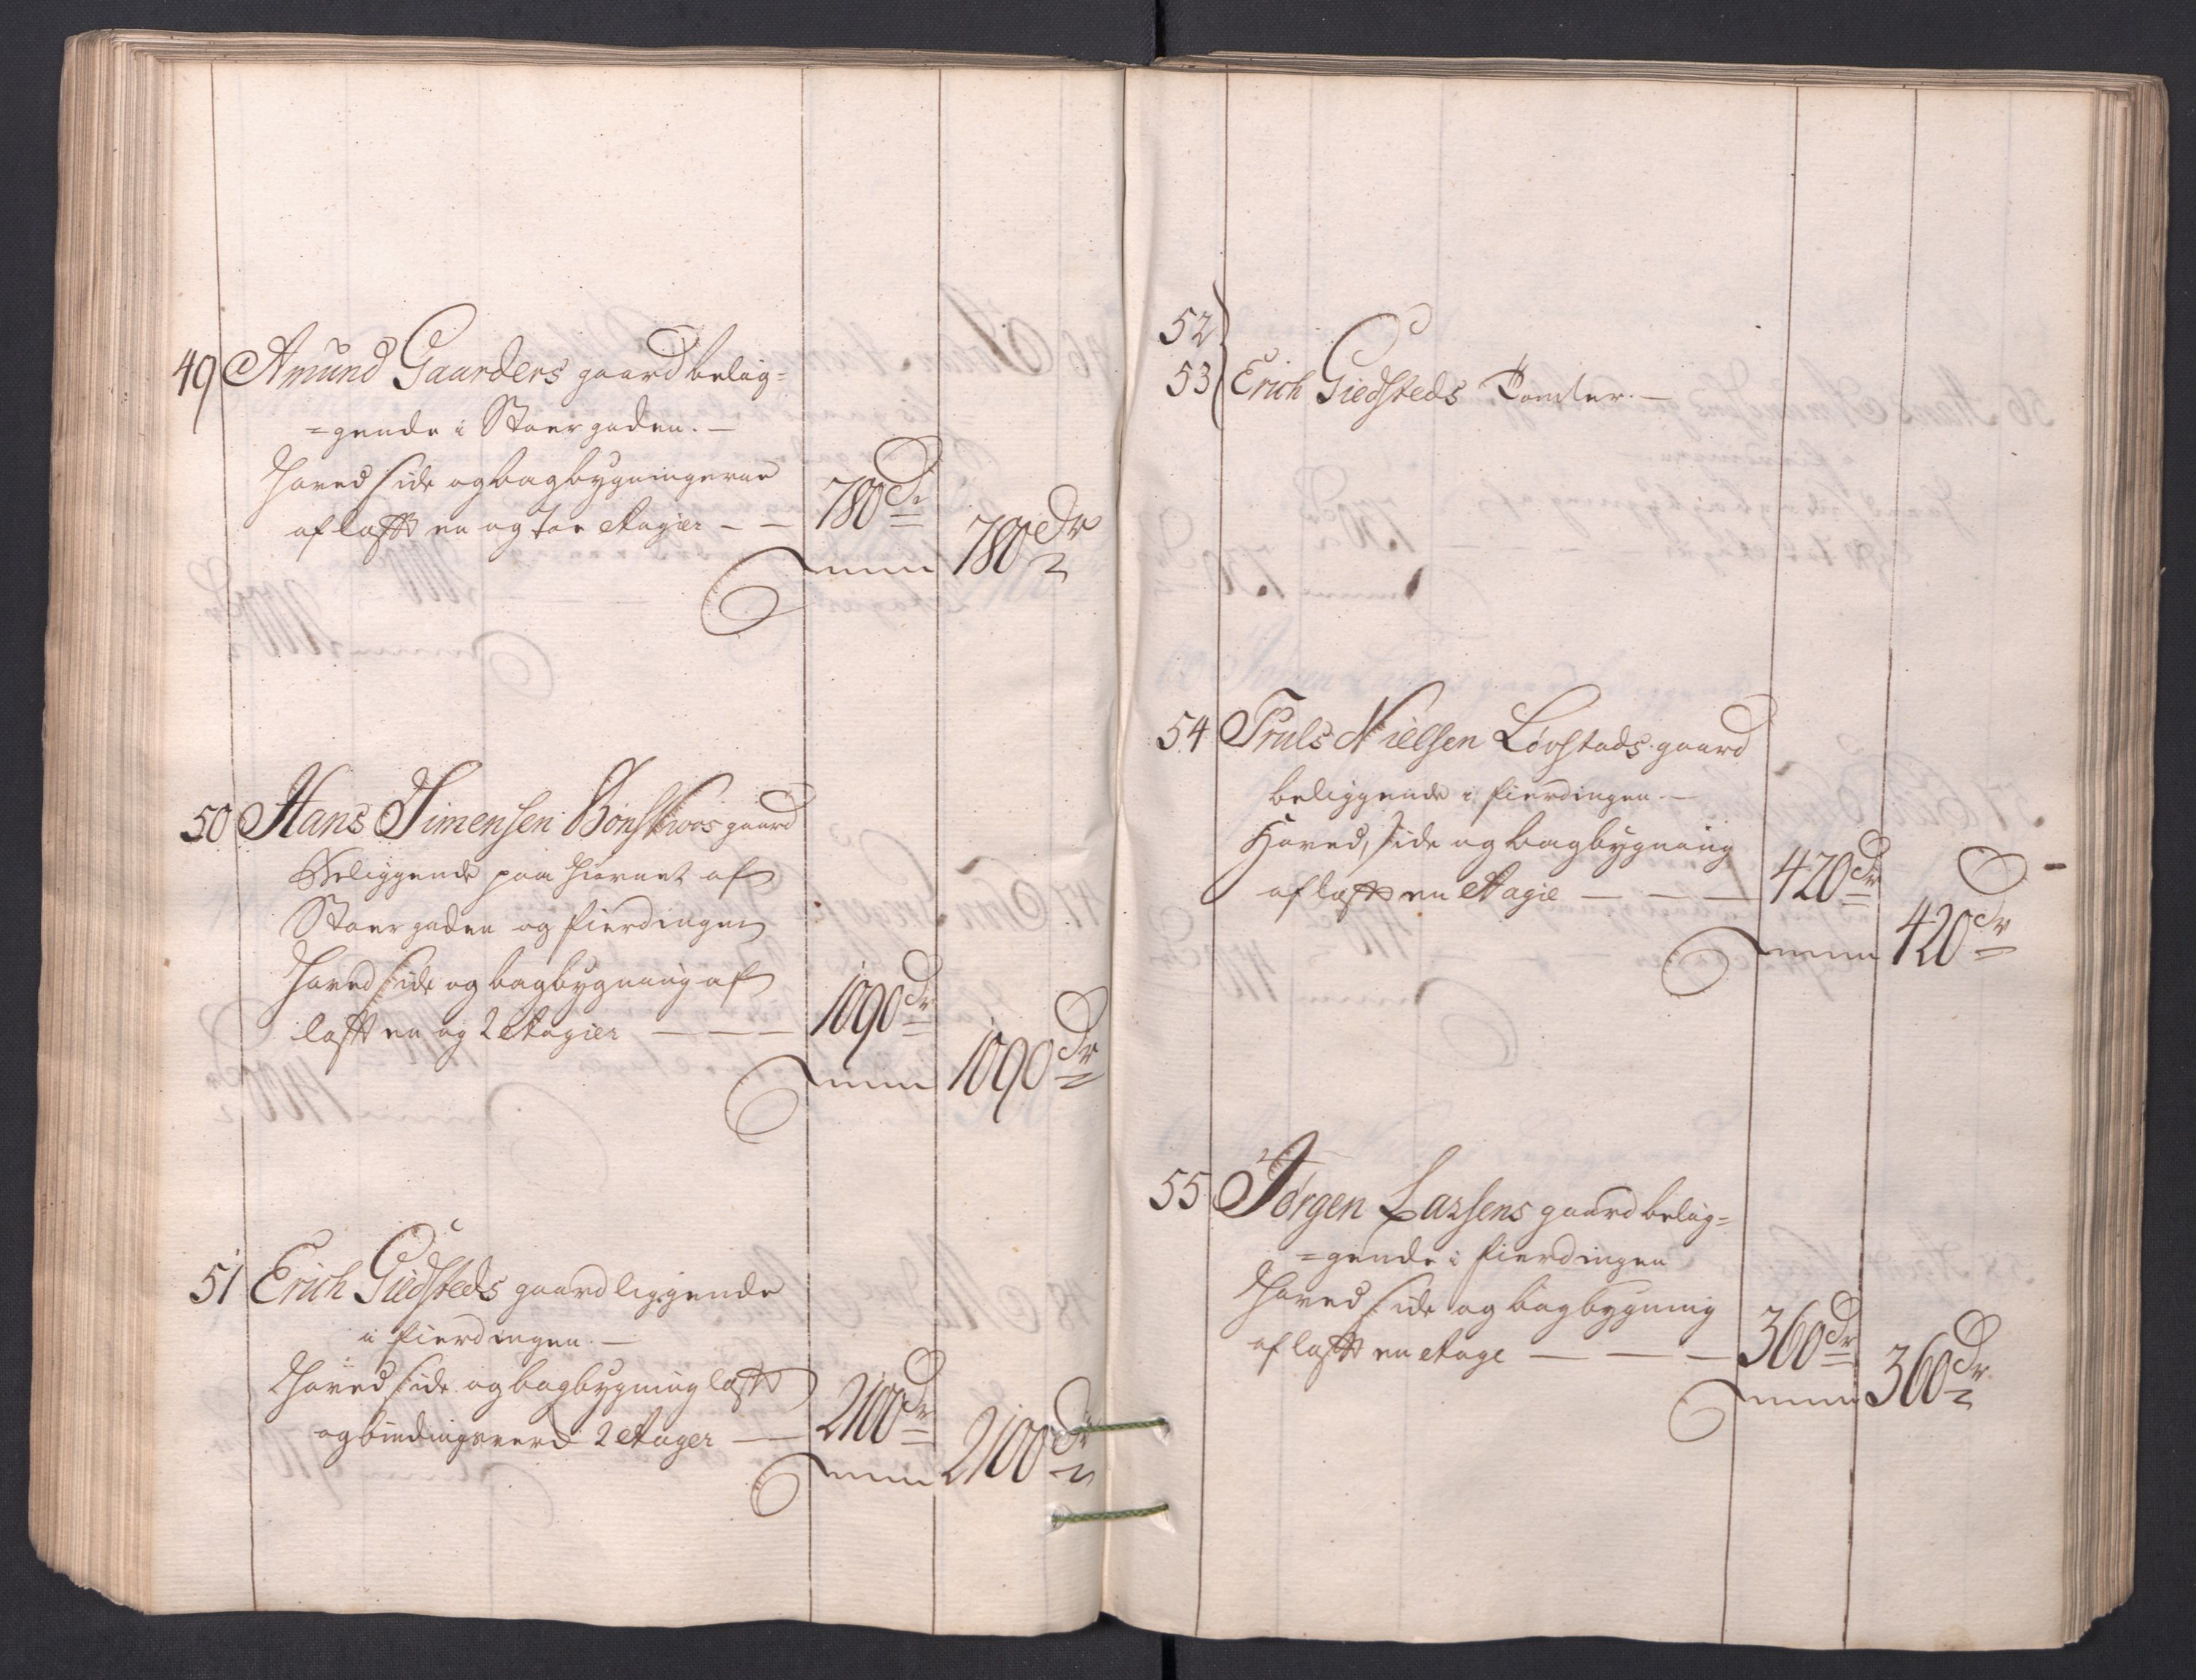 49 Amund Gaarders gaard belig=
=gende i Stoer gaden. —
Hoved side og bagbygningerne
af laftt en og toe Etagier — — 780 Dr
Summa 780 Dr
50 Hans Simensen Bønskoos gaard
Beliggende paa Hiørnet af
Stoer gaden og fierdingen
Hoved side og bagbygning af
laftt en og 2 Etagier — — — 1090 Dr
Summa 1090 Dr
51 Erich Giedsteds gaard liggende
i fierdingen. —
Hoved side og bagbygning laftt
og bindingsverk 2 Etager — 2100 Dr
Summa 2100 Dr
52
53 Erich Giedsteds Tomter. —
54 Truls Nielsen Løvstads gaard
beliggende i fierdingen. —
Hoved, side og bagbygning
af laftt en Etagie — — — 420 Dr
Summa 420 Dr
55 Jørgen Larsens gaard belig=
=gende i fierdingen
Hoved side og bagbygning
af laftt en etage — — — 360 Dr
Summa 360 Dr